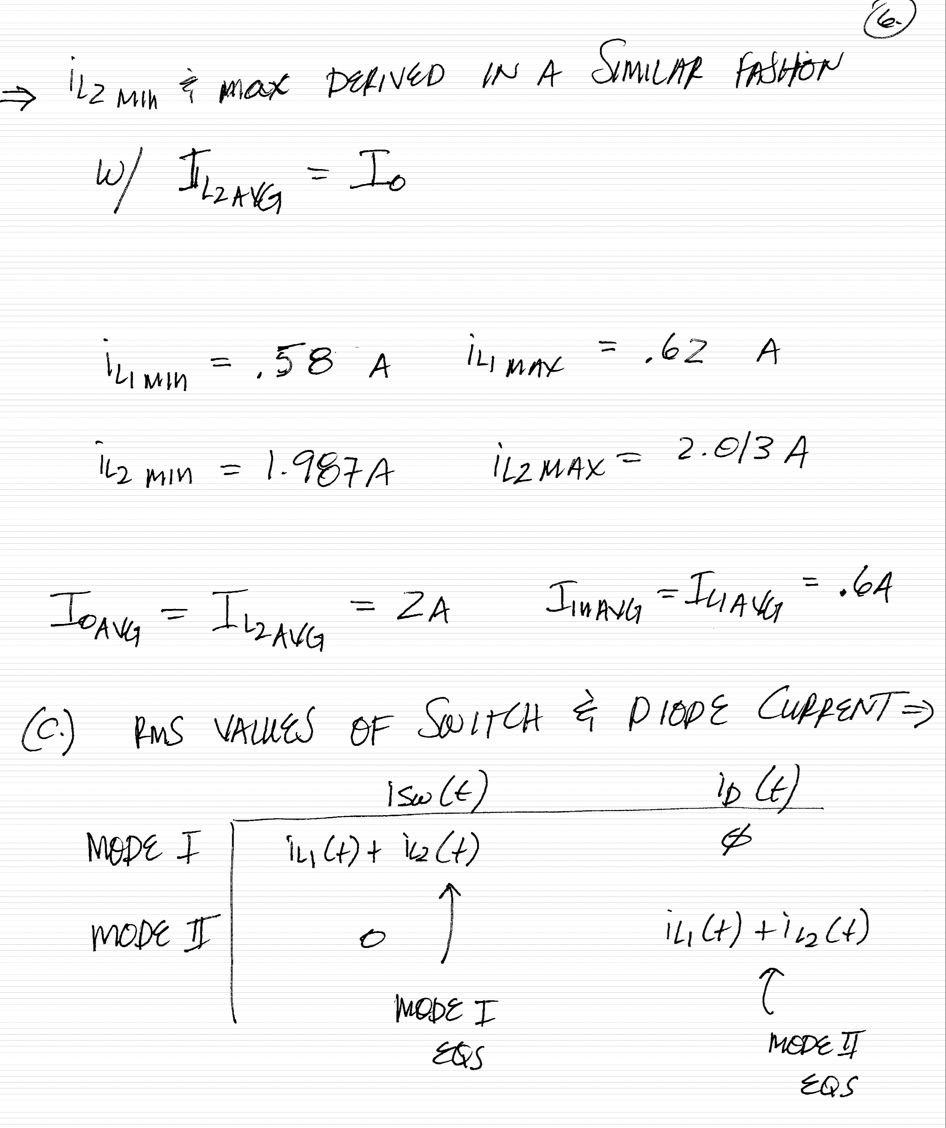 6.
⇒ iL2 MIN & MAX DERIVED IN A SIMILAR FASHION
W/ IL2AVG = Io
iL1 MIN = .58 A iL1 MAX = .62 A
iL2 MIN = 1.987A iL2 MAX = 2.013 A
IOAVG = IL2AVG = 2A IINAVG = IL1AVG = .6A
(C.) RMS VALUES OF SWITCH & DIODE CURRENT ⇒
isw(t) iD(t)
MODE I iL1(t) + iL2(t) ∅
MODE II 0 iL1(t) + iL2(t)
MODE I
EQS
MODE II
EQS